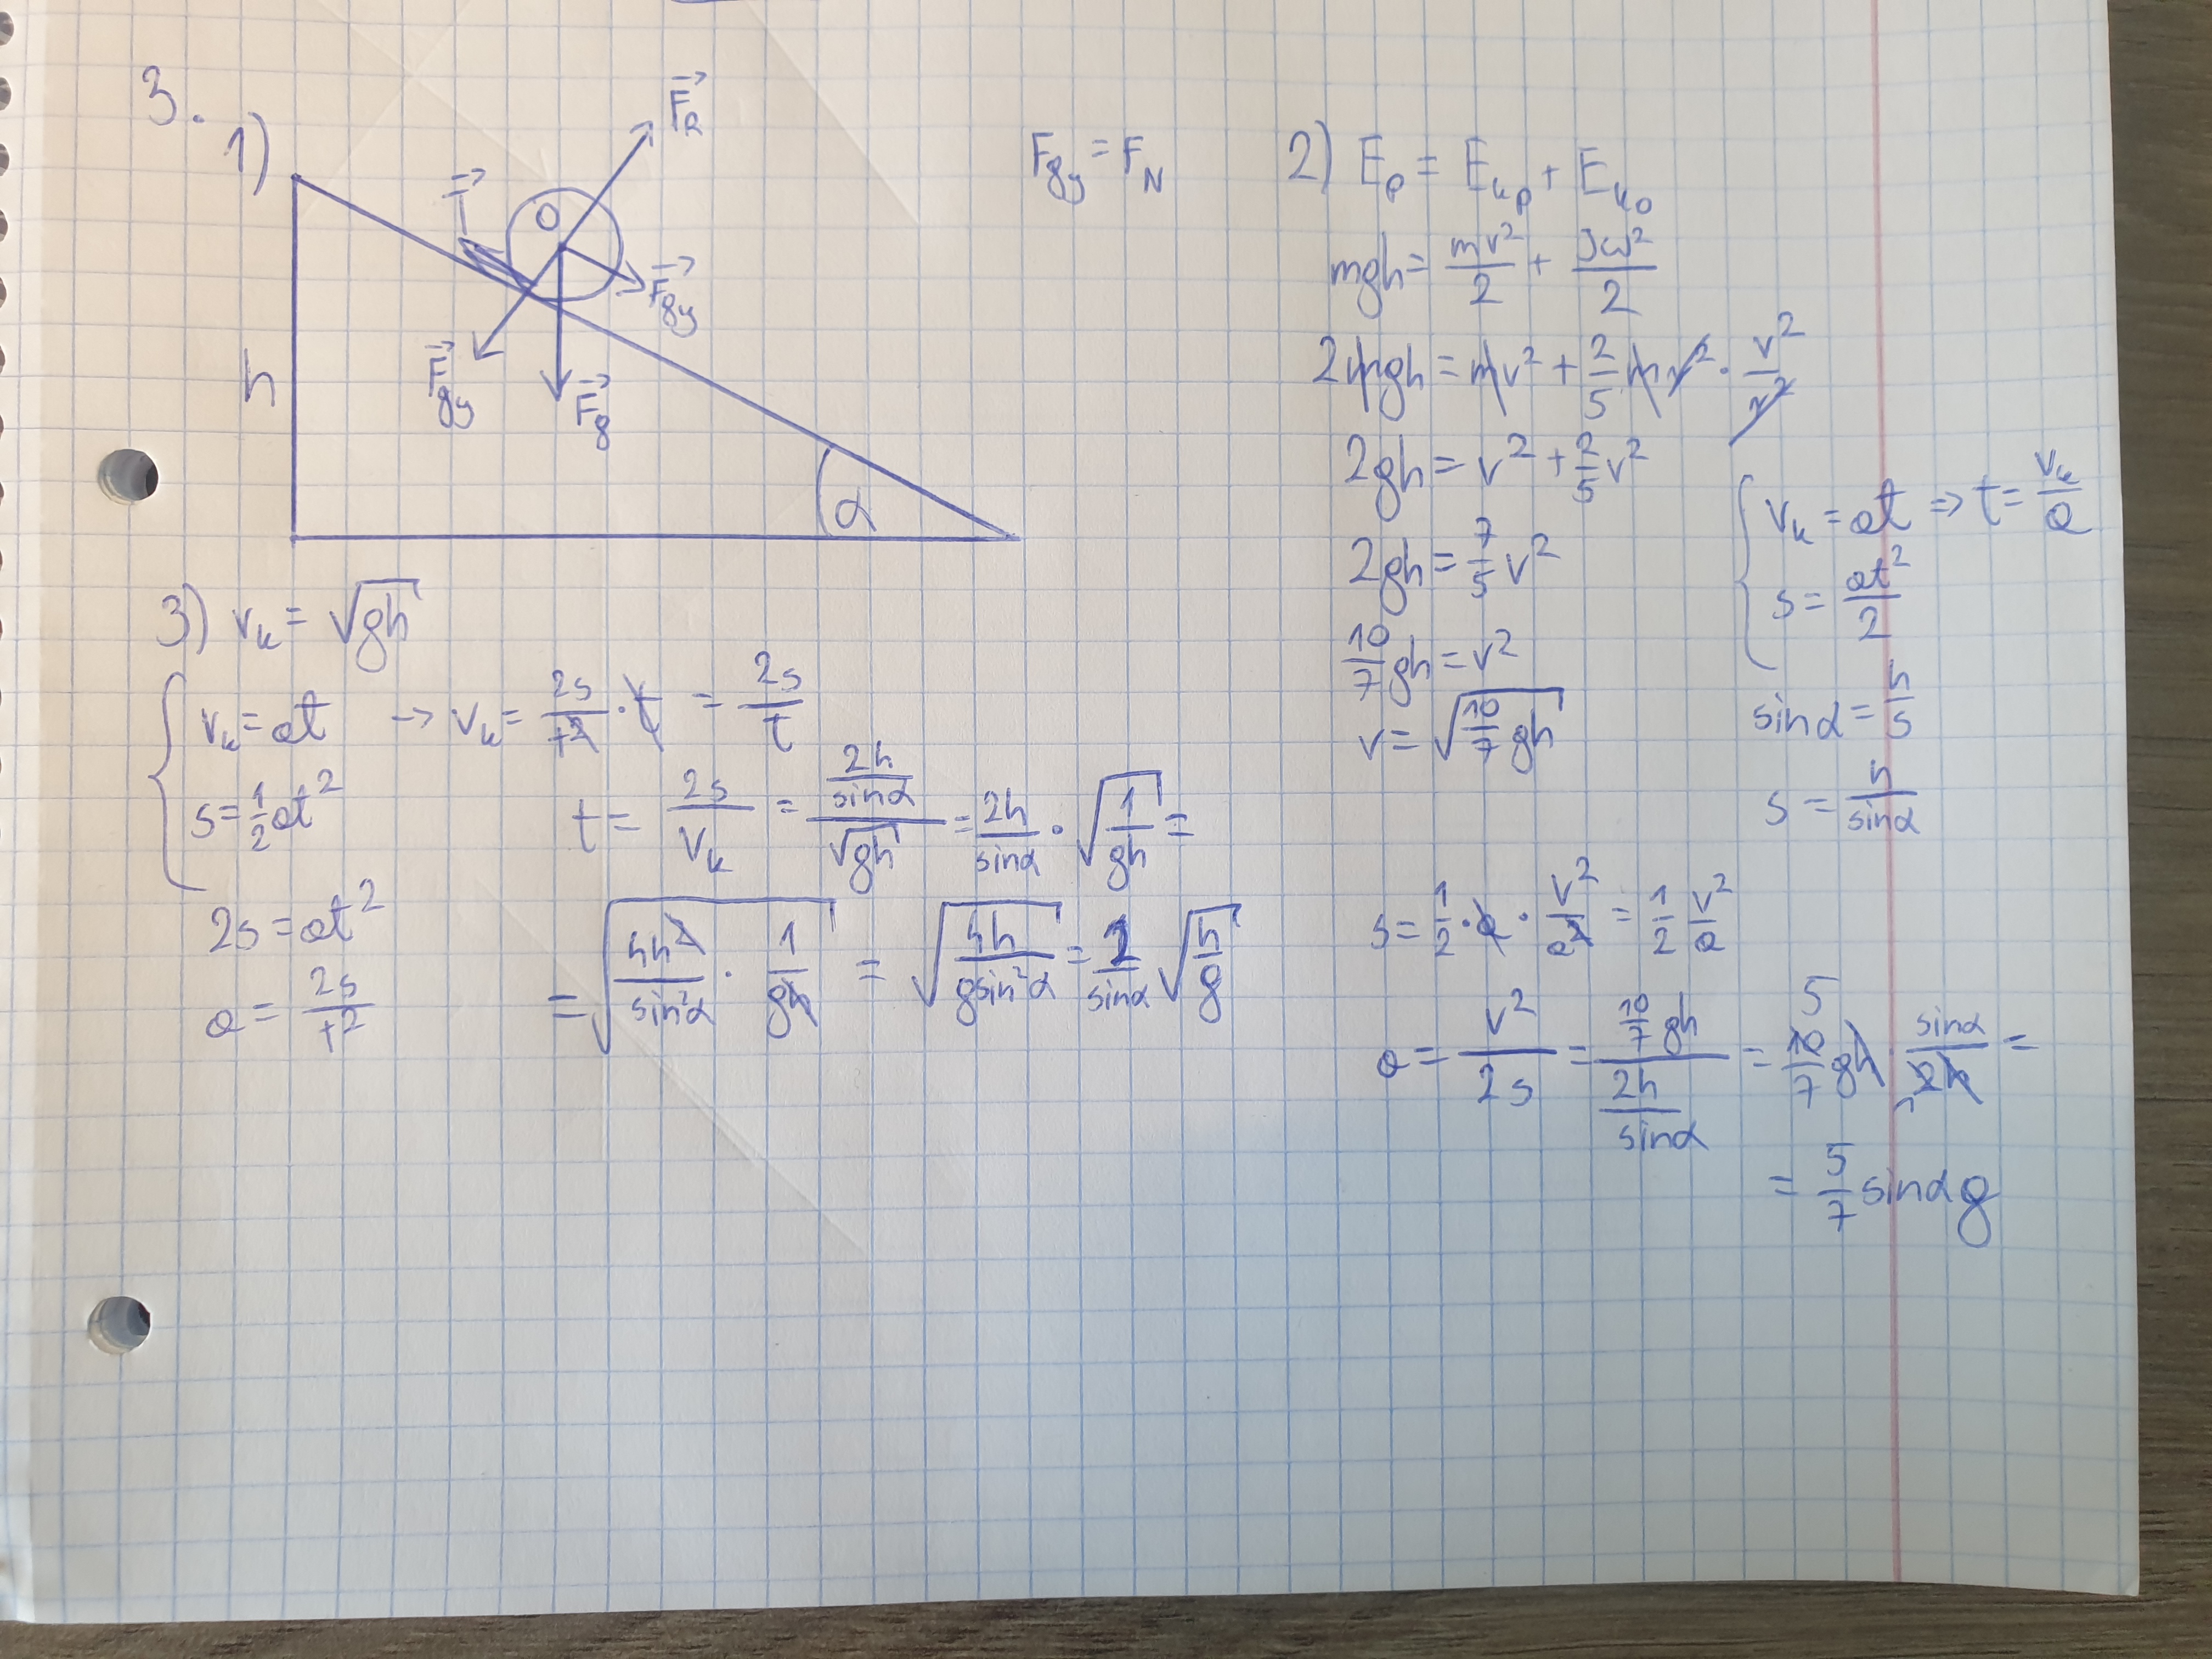 3.
1)
F_R
F_gy = F_N
T
O
F_gy
F_gy
F_g
h
α
2) E_p = E_kp + E_ko
mgh = mv²/2 + Jω²/2
2mgh = mv² + 2/5 mr² · v²/r²
2gh = v² + 2/5 v²
2gh = 7/5 v²
10/7 gh = v²
v = √(10/7 gh)
v_k = at ⇒ t = v_k/a
s = at²/2
sinα = h/s
s = h/sinα
s = 1/2 · a · v²/a² = 1/2 v²/a
a = v²/2s = (10/7 gh)/(2h/sinα) = 10/7 gh · sinα/2h =
5
= 5/7 sinα g
3) v_k = √gh
v_k = at → v_k = 2s/t² · t = 2s/t
s = 1/2 at²
t = 2s/v_k = (2h/sinα)/√gh = 2h/sinα · √(1/gh) =
2s = at²
a = 2s/t²
= √(4h²/sin²α · 1/gh) = √(4h/gsin²α) = 2/sinα √(h/g)